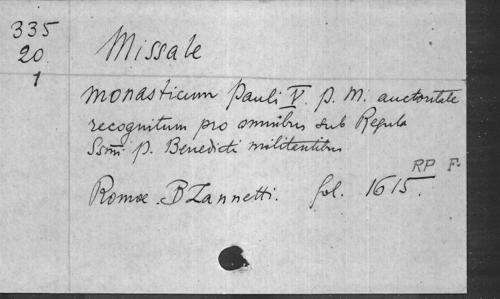 335
20.
1
Missale
monasticum Pauli V. P. M. auctoritate
recognitum pro omnibus sub Regula
Ssmi P. Benedicti militantibus
RP F.
Romae. B Zannetti. fol. 1615.